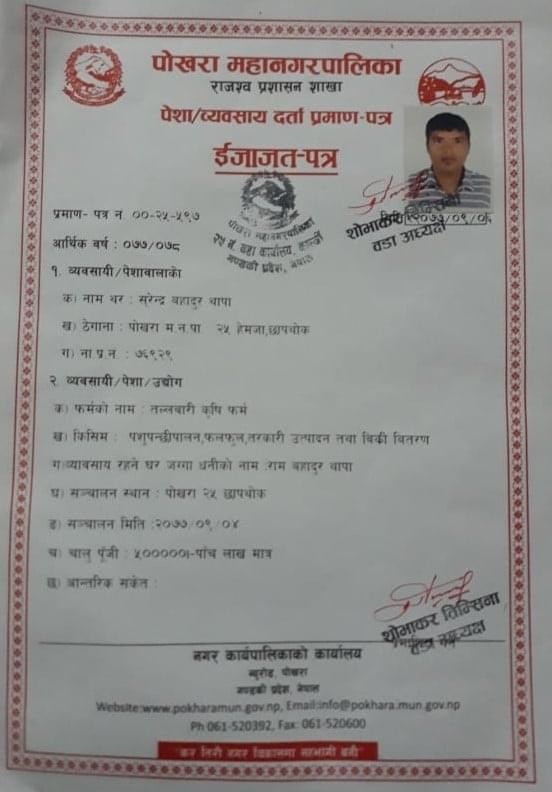 पोखरा महानगरपालिका
राजश्व प्रशासन शाखा
पेशा/व्यवसाय दर्ता प्रमाण-पत्र
ईजाजत-पत्र
प्रमाण- पत्र नं ००-२५-५९७
मिति :२०७७/०९/०५
शोभाकर तिम्सिना
वडा अध्यक्ष
पोखरा महानगरपालिका
२५ नं. वडा कार्यालय, कास्की
गण्डकी प्रदेश, नेपाल
आर्थिक बर्ष : ०७७/०७८
१. व्यवसायी/पेशावालाको
क) नाम थर : सुरेन्द्र बहादुर थापा
ख) ठेगाना : पोखरा म.न.पा २५ हेमजा,छापथोक
ग) ना.प्र.न. : ७६९२९
२. व्यवसायी/पेशा/उद्योग
क) फर्मको नाम : तल्लबारी कृषि फर्म
ख) किसिम : पशुपन्छीपालन,फलफुल,तरकारी उत्पादन तथा बिक्री बितरण
ग)व्यावसाय रहने घर जग्गा धनीको नाम :राम बहादुर थापा
घ) सञ्चालन स्थान : पोखरा २५ छापथोक
ङ) सञ्चालन मिति :२०७७/०९/०४
च) चालु पूँजी : ५०००००।-पाँच लाख मात्र
छ) आन्तरिक संकेत :
शोभाकर तिम्सिना
वडा अध्यक्ष
नगर कार्यपालिकाको कार्यालय
न्यूरोड, पोखरा
गण्डकी प्रदेश, नेपाल
Website:www.pokharamun.gov.np, Email:info@pokhara.mun.gov.np
Ph 061-520392, Fax: 061-520600
"कर तिरी नगर विकासमा सहभागी बनौं"